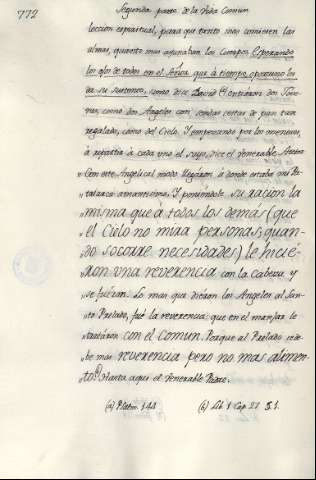 772
Segunda parte de la Vida Comun
leccion espiritual, para que tanto mas comiesen las
almas, quanto mas ayunaban los cuerpos. Esperando
los ojos de todos en el Señor, que à tiempo oportuno les
da su sustento, como dice David entraron dos Jove-
nes, como dos Angeles con sendas cestas de pan tan
regalado, como del Cielo. Y empezando por los menores,
à repartir à cada uno el suyo, dice el Venerable
Con este Angelical modo llegaron à donde estaba mi Pa-
amantisimo. Y poniendole su racion la
misma que à todos los demàs (que
el Cielo no mira personas, quan-
do socorre necesidades) le hicie-
ron una reverencia con la Cabeza y
se fueron. Lo mas que dieron los Angeles al San-
to Prelado, fuè la reverencia; que en el manjar le
trataron con el Comun. Porque al Prelado se de-
be mas reverencia pero no mas alimen-
to. (b) Hasta aqui el Venerable Padre.
(a) Psalm. 144 (b) Lib 1 Cap 27 §. 1.